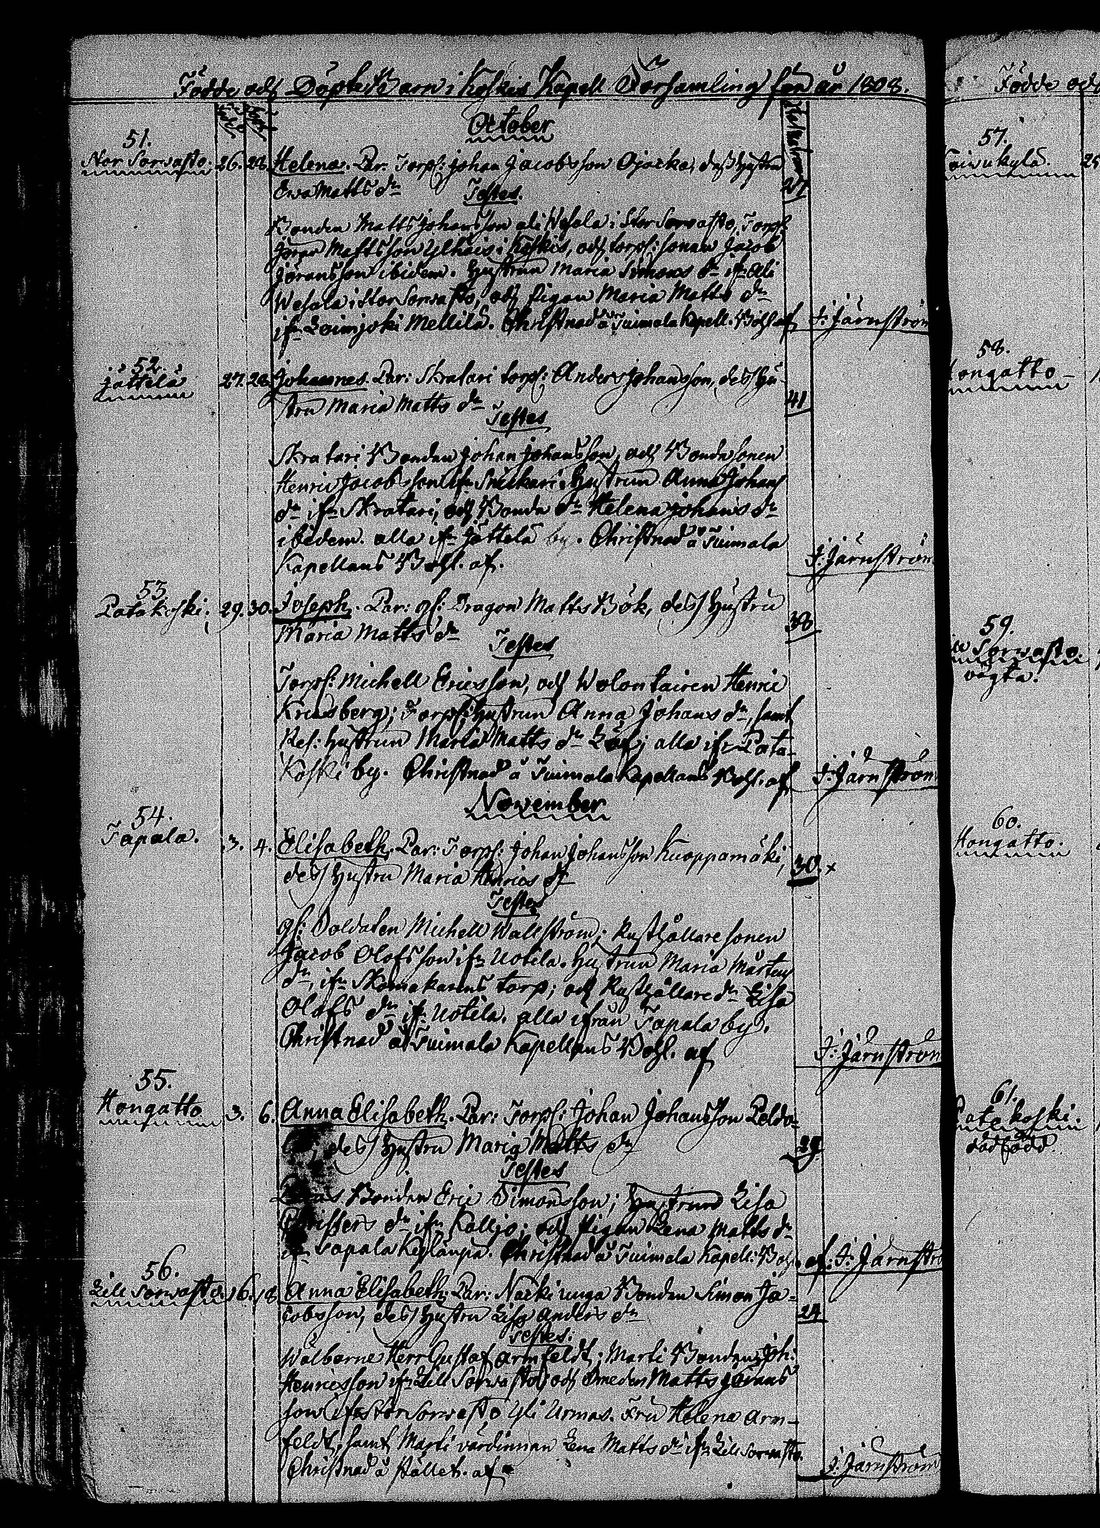 Födde och Döpte Barn i Koskis Kapell Församling för år 1808.
October
51.
Nor Sorvasto. 26. 28. Helena. Par: Torps: Johan Jacobsson Ojacka, dess hustru
Ewa Matts dr 27
Testes.
Bonden Matts Johansson ali Wesala i Stor Sorvasto, Torp:
Jöran Mattsson Ylhäis i Koskis, och torps: sonen Jacob
Jöransson ibidem. Hustrun Maria Simons dr ifr Ali
Wesala i Stor Sorvasto, och Pigan Maria Matts dr
ifr Loimjoki Mellilä. Christnad å Tuimala Kapell. Bohl af J: Järnström
52.
Jättelä 27. 28. Johannes. Par: Skratari torps: Anders Johansson, dess hu-
stru Maria Matts dr 41
Testes
Skratari Bonden Johan Johansson, och Bondesonen
Henric Jacobsson ifr Snickari. Hustrun Anna Johans
dr ifr Skratari, och Bonde dr Helena Johans dr
ibidem. alla ifr Jättelä by. Christnad å Tuimala
Kapellans Bohl. af. J: Järnström
53.
Patakoski. 29. 30. Joseph. Par: gf: Dragon Matts Bök, dess Hustru
Maria Matts dr 38
Testes
Torps: Michell Ericsson, och Wolontairen Henric
Krusberg; Torps: Hustrun Anna Johans dr, samt
Res: Hustrun Maria Matts dr Löf; alla ifr Pata-
koski by. Christnad å Tuimala Kapellans Bohl. af J: Järnström
November
54.
Tapala. 3. 4. Elisabeth. Par: Torps: Johan Johansson Kuoppamäki,
dess Hustru Maria Henrics dr 30. x
Testes
gf: Soldaten Michell Wallström; Rusthållaresonen
Jacob Olofsson ifr Uotila. Hustrun Maria Mårtens
dr, ifr Skomakarens torp; och Rusthållare dr Lisa
Olofs dr ifr Uotila. alla ifrån Tapala by.
Christnad å Tuimala Kapellans Bohl. af J: Järnström
55.
Hongatto 3. 6. Anna Elisabeth. Par: Torps: Johan Johansson Peldo-
dess Hustru Maria Matts dr 29
Testes
Bonden Eric Simonsson; Hustrun Lisa
Christers dr ifr Kallio; och Pigan Lena Matts dr
ifr Tapala Kylänpä. Christnad å Tuimala Kapell: Bohl. af: J: Järnströ
56.
Lill Sorvasto. 16. 18. Anna Elisabeth: Par: Nacki unga Bonden Simon Ja-
cobsson, dess Hustru Lisa Anders dr 24
Testes:
Wälborne Herr Gustaf Armfeldt; Marti Bonden Joh:
Henricsson ifr Lill Sorvasto, och Smeden Matts Jörans
son ifr Stor Sorvasto Yli Urmas. Fru Helena Arm-
feldt, samt Marti värdinnan Lena Matts dr ifr Lill Sorvasto.
Christnad å stället. af J: Järnström
Födde och
57.
Koivukylä. 25
58.
Hongatto
59.
Sorvasto
vägta.
60.
Hongatto.
61.
Patakoski.
dödfödd.